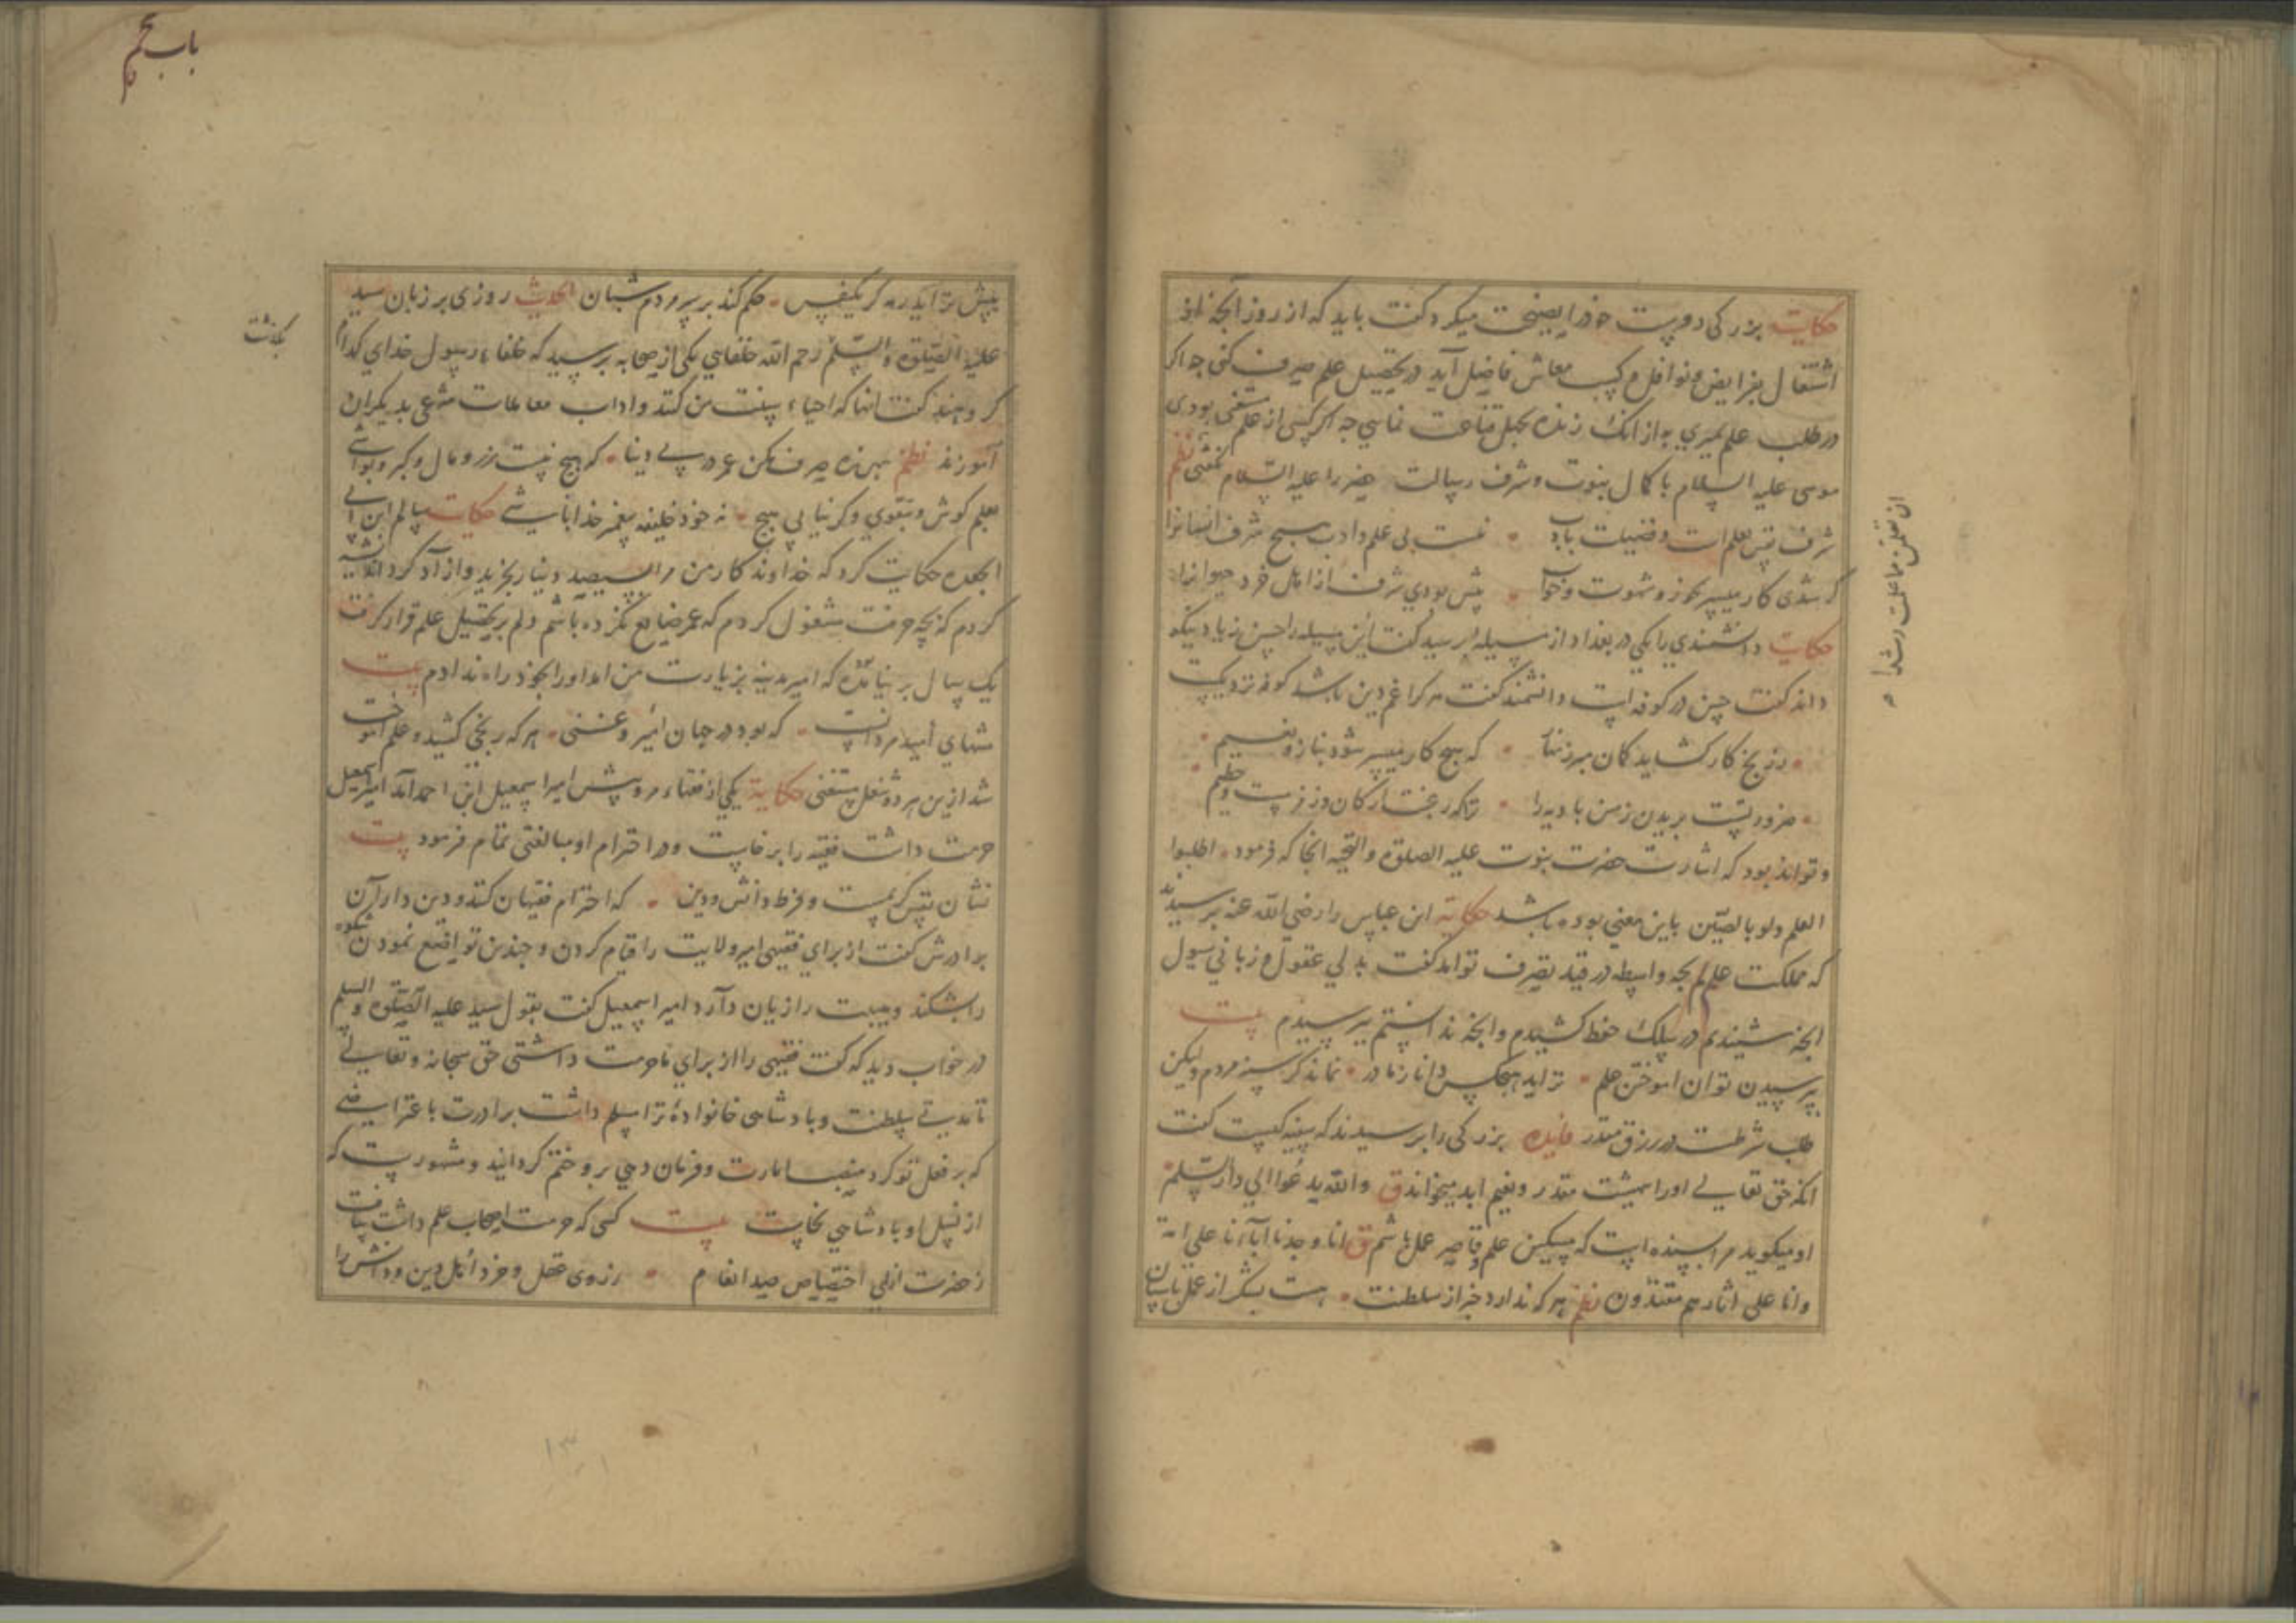 حکایت بزرکی دوست خود را نصیحت میکرد کفت باید که از روز آنچه از
اشتغال بفرایض و نوافل و کسب معاش فاضل آید در تحصیل علم صرف کنی چه اکر
در طلب علم بمیری به از آنک زنده بجهل قناعت نمایی چه اکر کسی از علم مستغنی بودی
موسی علیه السلام با کمال نبوت و شرف رسالت خضر را علیه السلام نکفتی نظم
شرف نفس بعلم است و فضیلت بادب نیست بی علم و ادب هیچ شرف انسانرا
کر شدی کار میسر بخور و شهوت و خواب پیش بودی شرف از اهل خرد حیوانرا
حکایت دانشمندی را یکی در بغداد از مسیله پرسید کفت این مسیله را حسن زیاد نیکو
داند کفت حسن در کوفه است دانشمند کفت هر کرا غم دین باشد کوفه نزدیکست
ز رنج کار کشاید کمان مبر زنهار که هیچ کار میسر شود بناز و نعیم
ضرورتست بریدن زمین بادیه را
و تواند بود که اشارت حضرت نبوت علیه الصلوة والتحیه انجا که فرمود اطلبوا
العلم ولو بالصین باین معنی بوده باشد حکایة ابن عباس را رضی الله عنه پرسیدند
که مملکت علم بچه واسطه در قید تصرف تو امد کفت بدلی عقول و زبانی سول
آنچه شنیدم در سلک حفظ کشیدم و آنچه ندانستم بپرسیدم بیت
بپرسیدن توان اموختن علم نزاید هیچکس دانا ز مادر نماند کر سپه مردم ولیکن
طلب شرطست در رزق مقدر فایده بزرکی را پرسیدند که سفیه کیست کفت
انکه حق تعالی او را بمیشت مقدر و نعیم ابد میخواند ق والله یدعوا الی دار السلم
او میکوید مرا پسنده است که مسکین علم و قاصر عمل باشم ق انا وجدنا آباءنا علی امة
وانا علی اثارهم مقتدون نظم هر که ندارد خبر از سلطنت هست بسکر از عمل پاسبان
ان تعلمن مما علمت رشدا
باب پنجم
پیش تو آید رمه کر یکنفس حکم کند بر سر مردم شبان الحدیث روزی بر زبان سید
علیه الصلوة والسلم رحم الله خلفایی یکی از صحابه پرسید که خلفاء رسول خدای کدام
بکذشت
کروهند کفت انها که احیاء سنت من کنند و اداب معاملات شرعی بدیکران
آموزند نظم بهرزه صرف مکن عمر در پی دنیا که هیچ نیست زر و مال و کبر و بواشی
بعلم کوش و بتقوی و کر نیابی هیچ نه خود خلیفه پیغمبر خدا باشی حکایت سالم ابن ابی
الجعده حکایت کرد که خداوند کار من مرا بسیصد دینار بخرید و ازاد کرد اندیشه
کردم که بچه حرفت مشغول کردم که عمر ضایع نکرده باشم دلم بر تحصیل علم قرار کرفت
یک سال بر نیامد که امیر مدینه بزیارت من امد او را بخود راه ندادم بیت
منتهای امید مردانست که بود در جهان امیر و غنی هر که رنجی کشید و علم اموخت
شد ازین هر دو شغل مستغنی حکایة یکی از فقهاء مرو پیش امیر اسمعیل ابن احمد آمد امیر اسمعیل
حرمت داشت فقیه را برخاست و در احترام او مبالغتی تمام فرمود بیت
نشان نفس کریمست و فرط دانش و دین که احترام فقیهان کنند و دین داران
برادرش کفت از برای فقیهی امیر ولایت را قیام کردن و چندین تواضع نمودن شکوه
را بشکند و هیبت را زیان دآرد امیر اسمعیل کفت بقول سید علیه الصلوة والسلم
در خواب دید که کفت فقیهی را از برای ما حرمت داشتی حق سبحانه و تعالی
تا مدتی سلطنت و پادشاهی خانواده ترا مسلم داشت برادرت با عتراضی
که بر فعل تو کرد منصب امارت و فرمان دهی برو ختم کردانید و مشهورست که
از نسل او پادشاهی نخاست بیت کسی که حرمت اصحاب علم داشت بیافت
ز حضرت ازلی اختصاص صد انعام ز روی عقل و خرد اهل دین و دانش را